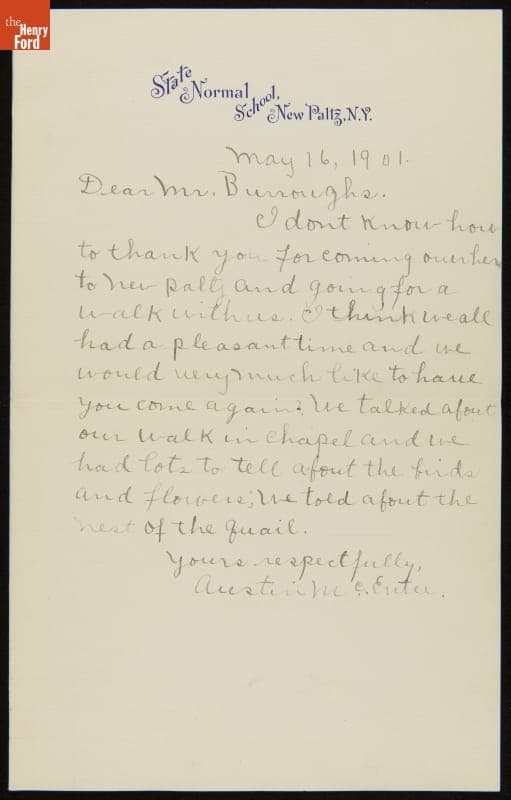 the
Henry
Ford
State
Normal
School,
New Paltz, N.Y.
May 16, 1901.
Dear Mr. Burroughs.
I dont know how
to thank you for coming over her
to New Paltz and going for a
walk with us. I think we all
had a pleasant time and we
would very much like to have
you come again. We talked about
our walk in chapel and we
had lots to tell about the birds
and flowers, We told about the
nest of the quail.
Yours respectfully,
Austin Mc.